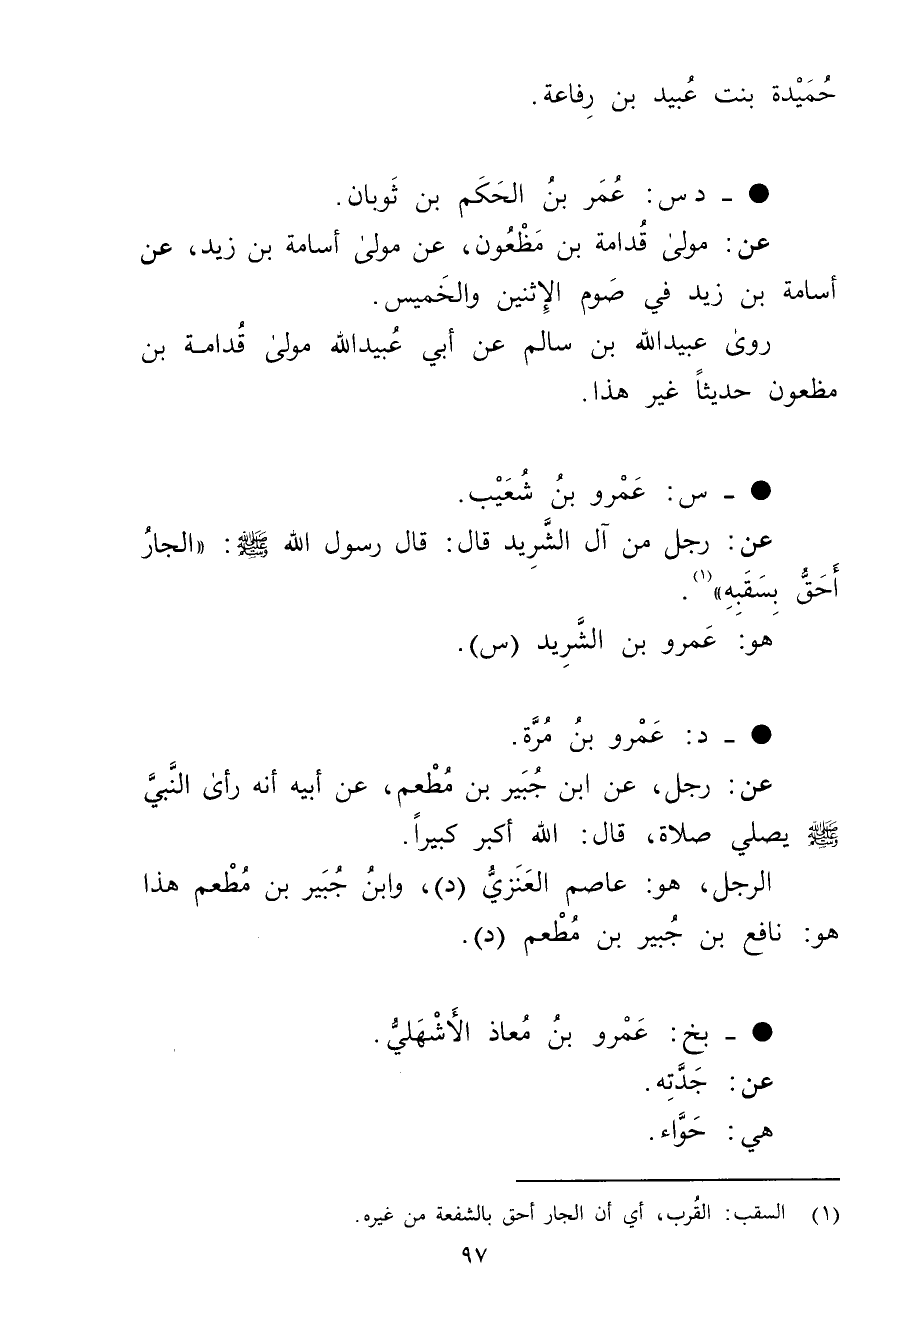 حُمَيْدة بنت عُبيد بن رِفاعة .
● ـ د س: عُمَر بنُ الحَكَم بن ثَوبان.
عن: مولىٰ قُدامة بن مَظْعُون، عن مولىٰ أسامة بن زيد، عن
أسامة بن زيد في صَوم الإثنين والخَميس.
روىٰ عبيدالله بن سالم عن أبي عُبيدالله مولىٰ قُدامـة بن
مظعون حديثاً غير هذا.
● ـ س: عَمْرو بنُ شُعَيْب.
عن: رجل من آل الشَّرِيد قال: قال رسول الله ﷺ: «الجارُ
أَحَقُّ بِسَقَبِهِ»(١).
هو: عَمرو بن الشَّرِيد (س).
● ـ د: عَمْرو بنُ مُرَّة.
عن: رجل، عن ابن جُبَير بن مُطْعم، عن أبيه أنه رأىٰ النَّبيَّ
ﷺ يصلي صلاة، قال: الله أكبر كبيراً.
الرجل، هو: عاصم العَنَزيُّ (د)، وابنُ جُبَير بن مُطْعم هذا
هو: نافع بن جُبير بن مُطْعم (د).
● ـ بخ: عَمْرو بنُ مُعاذ الأَشْهَليُّ.
عن: جَدَّتِه.
هي: حَوَّاء.
(١) السقب: القُرب، أي أن الجار أحق بالشفعة من غيره.
٩٧